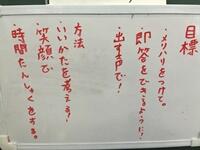 目標
・メリハリをつけて。
・即答をできるように!
・出す声で!
方法
・いいかたを考える!
・笑顔で
・時間たんしゅくをする。